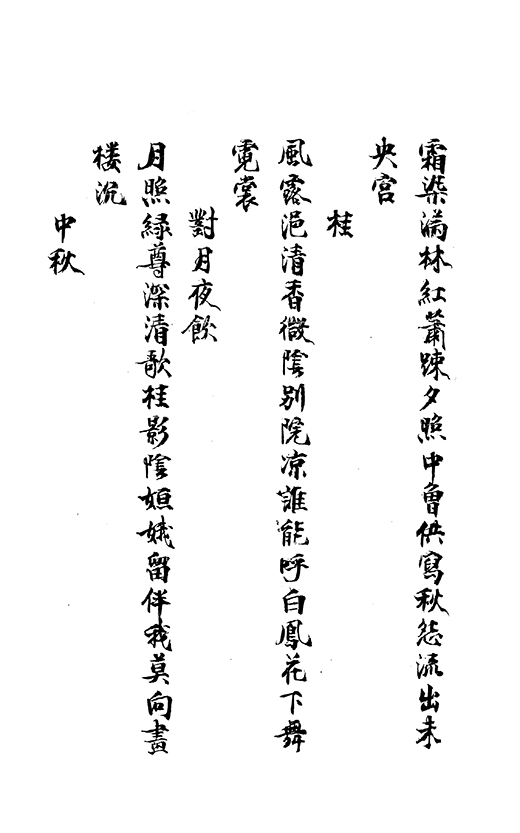 霜染滿林紅蕭踈夕照中曾供寫秋怨流出未
央宮
桂
風露浥清香微陰別院凉誰能呼白鳳花下舞
霓裳
對月夜飲
月照緑尊深清歌桂影陰姮娥留伴我莫向畫
楼沉
中秋